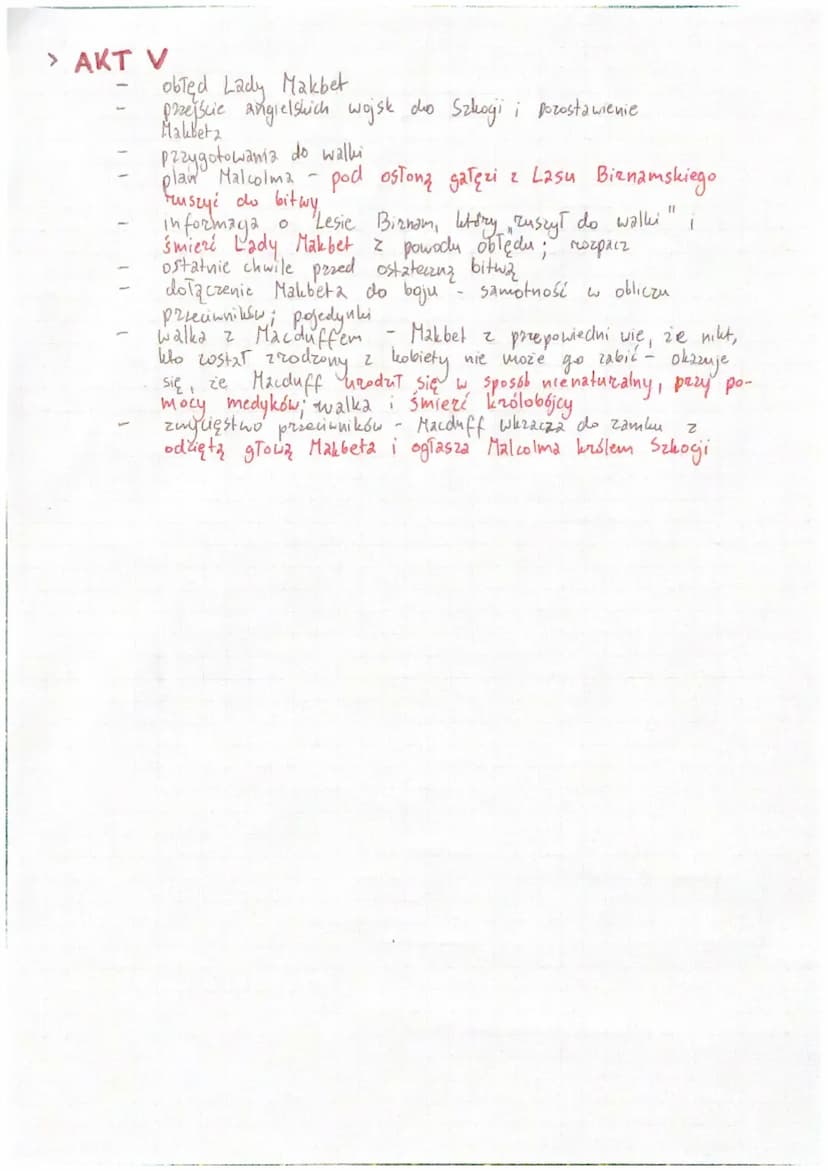 > AKT V
- obłęd Lady Makbet
- przejście angielskich wojsk do Szkocji i pozostawienie
Makbeta
- przygotowania do walki
- plan Malcolma - pod osłoną gałęzi z Lasu Birnamskiego
ruszyć do bitwy
- informacja o Lesie Birnam, który "ruszył do walki" i
śmierć Lady Makbet z powodu obłędu; rozpacz
- ostatnie chwile przed ostateczną bitwą
- dołączenie Makbeta do boju - samotność w obliczu
przeciwników; pojedynki
- walka z Macduffem - Makbet z przepowiedni wie, że nikt,
kto został zrodzony z kobiety nie może go zabić - okazuje
się, że Macduff urodził się w sposób nienaturalny, przy po-
mocy medyków; walka i śmierć królobójcy
- zwycięstwo przeciwników - Macduff wkracza do zamku z
odziętą głową Makbeta i ogłasza Malcolma królem Szkocji